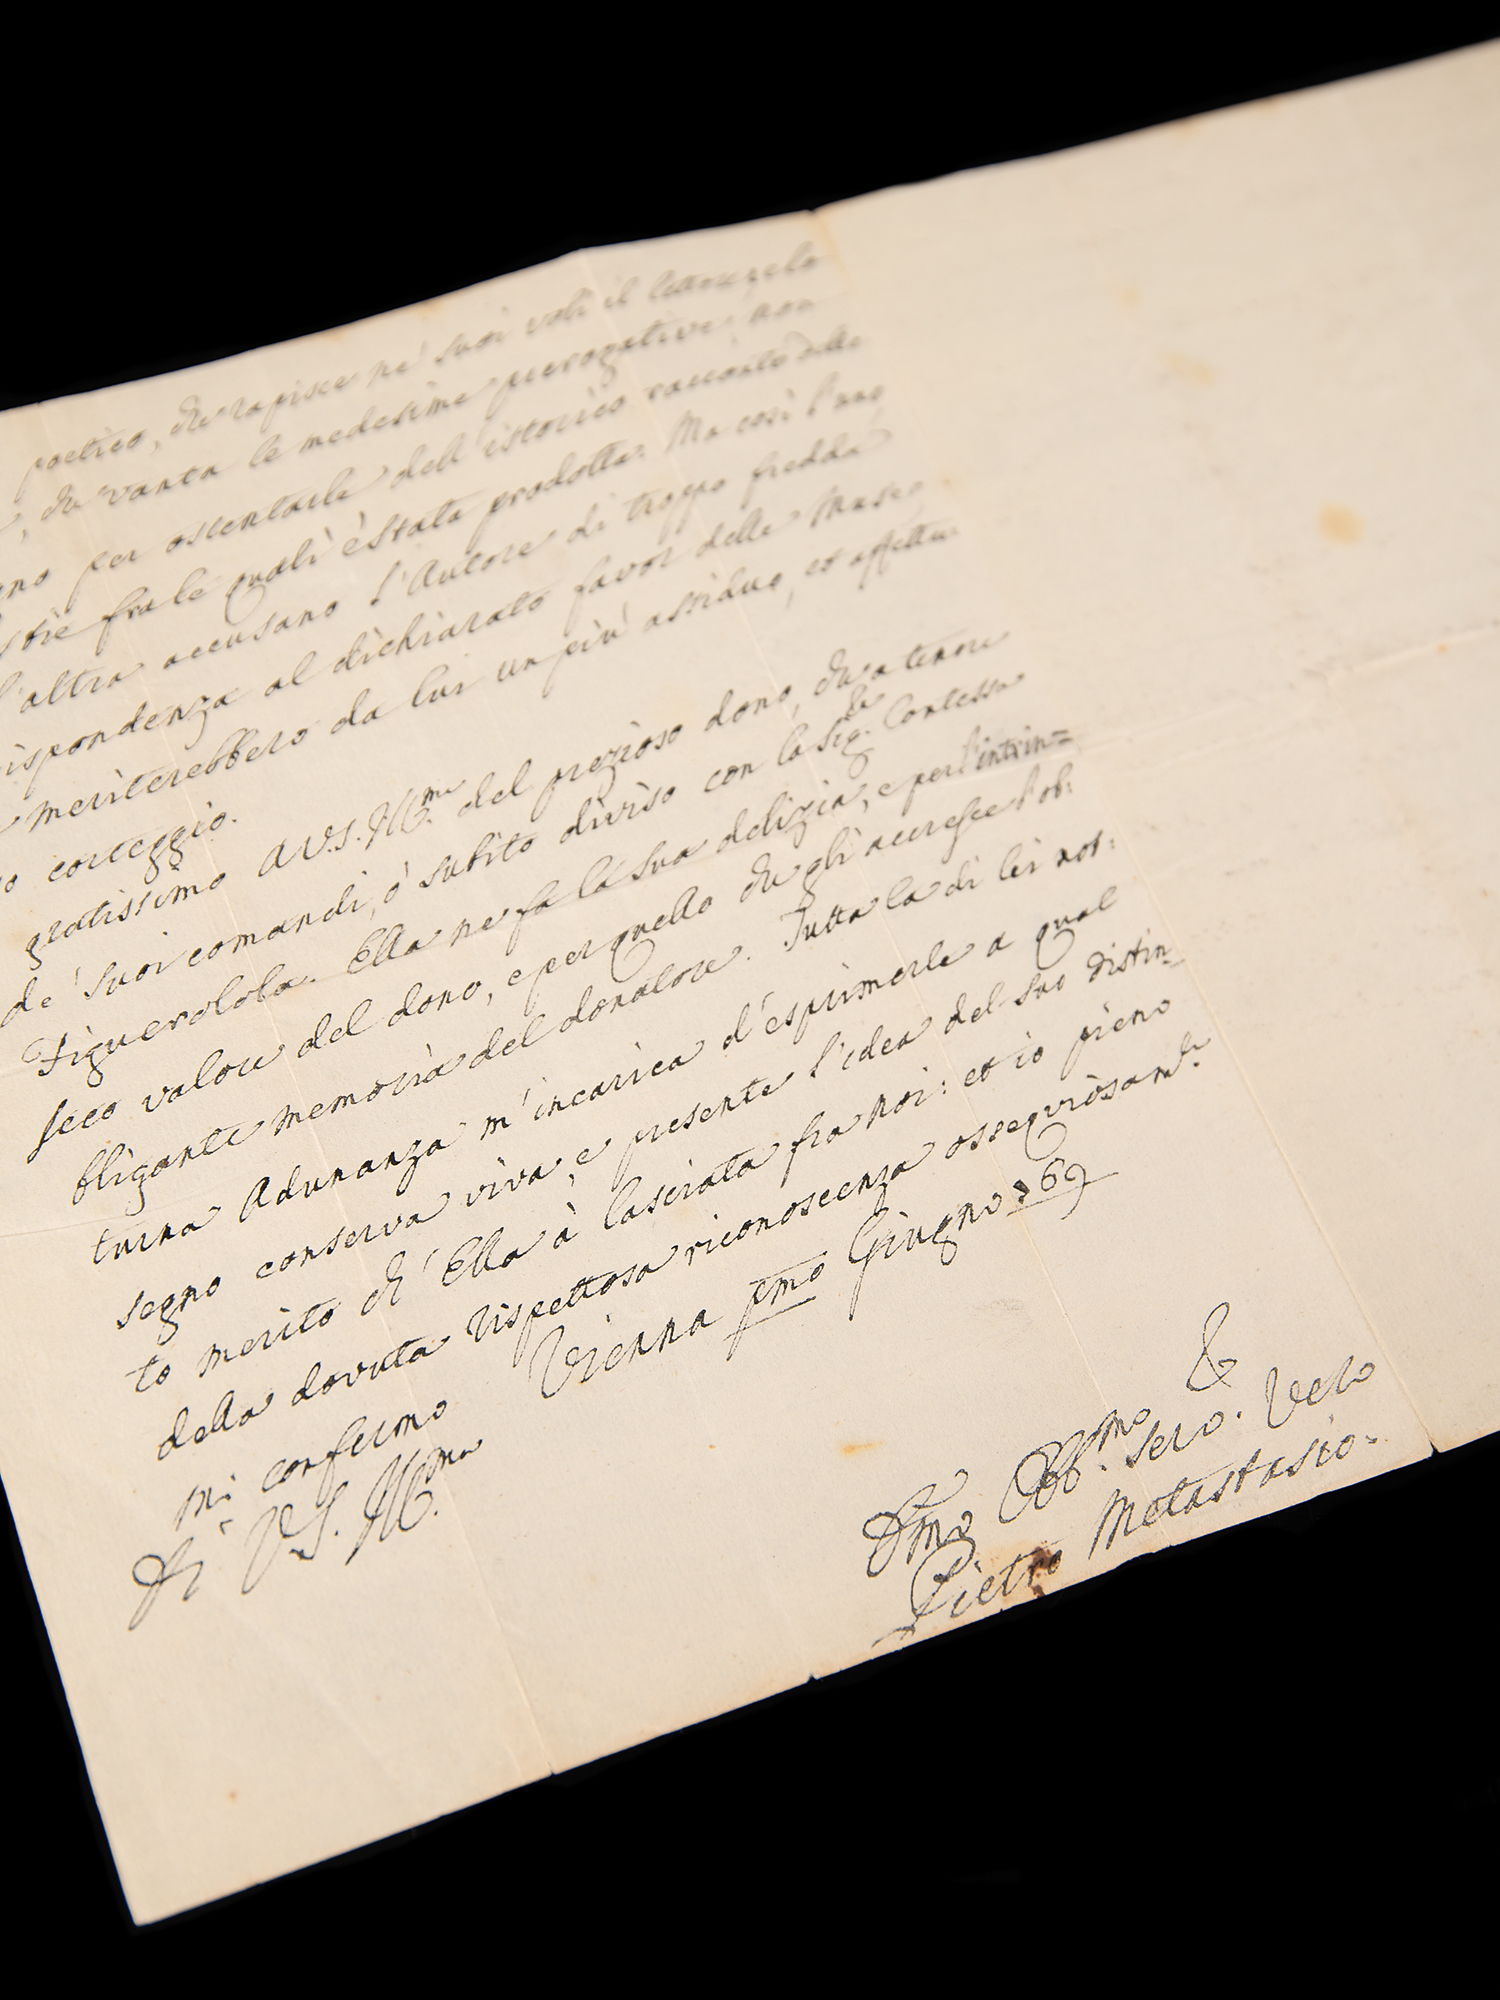 poetico, che rapisce ne' suoi voli il lettore, e la
, che vanta le medesime prerogative, non
per ostentarle dell'istorico racconto delle
fra le quali è stata prodotta. Ma così l'una,
l'altra accusano l'Autore di troppo fredda
ispondenza al dichiarato favor delle Muse
meriterebbero da lui un più assiduo, et affettu:
o corteggio.
gratissimo a V.S. Ill.ma del prezioso dono, che a tenore
de' suoi comandi, ò subito diviso con la Sig.ra Contessa
Figuerolola. Ella ne fa la sua delizia, e per l'intrin=
seco valore del dono, e per quello che gli accresce l'ob:
bligante memoria del donatore. Tutta la di lei not:
turna Adunanza m'incarica d'esprimerle a qual
segno conserva viva, e presente l'idea del suo distin=
to merito ch'Ella à lasciata fra noi: et io pieno
della dovuta rispettosa riconoscenza ossequiosam.te
mi confermo
Vienna pmo Giugno 769
Di V.S. Ill.ma
&
Dmo Obb.mo Servo. Vero
Pietro Metastasio.